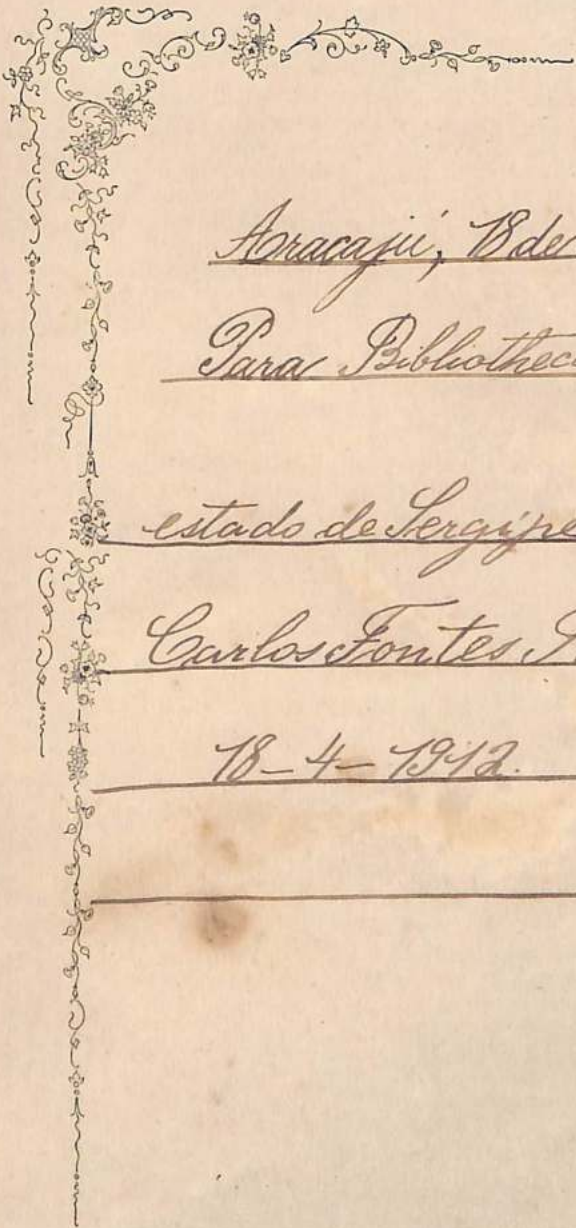 Aracajú, 18 de
Para Bibliothec
estado de Sergipe
Carlos Fontes
18-4-1912.